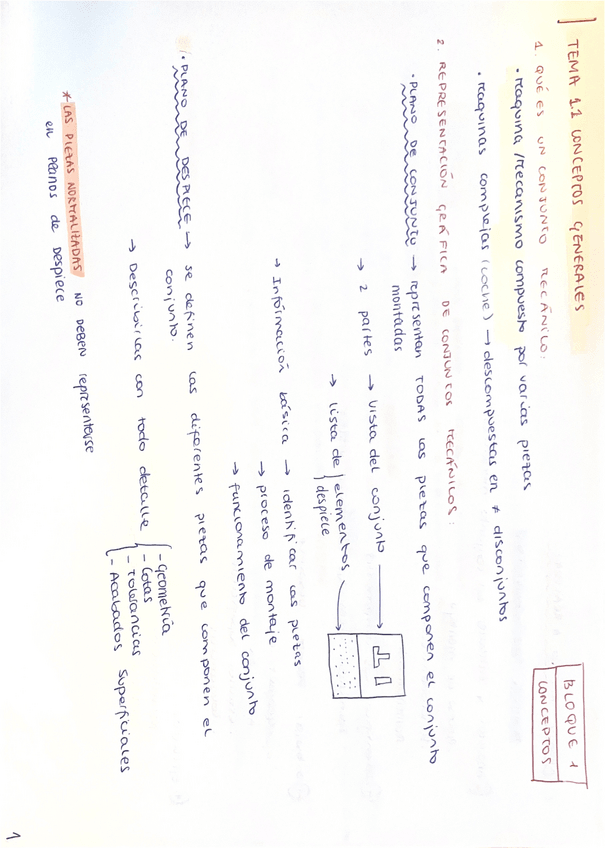 BLOQUE 1
CONCEPTOS
TEMA 1.1 CONCEPTOS GENERALES
1. QUÉ ES UN CONJUNTO MECÁNICO:
· Maquina / Mecanismo compuesto por varias piezas
· Maquinas complejas (coche) → descompuestas en ≠ disconjuntos
2. REPRESENTACIÓN GRÁFICA DE CONJUNTOS MECÁNICOS:
· PLANO DE CONJUNTO → representan TODAS las piezas que componen el conjunto
montadas
→ 2 partes → vista del conjunto →
→ lista de { elementos →
despiece
→ Información básica → identificar las piezas
→ proceso de montaje
→ funcionamiento del conjunto
· PLANO DE DESPIECE → se definen las diferentes piezas que componen el
conjunto.
→ Describirlas con todo detalle { - Geometría
- Cotas
- Tolerancias
- Acabados Superficiales
* LAS PIEZAS NORMALIZADAS NO DEBEN representarse
en Planos de Despiece
1